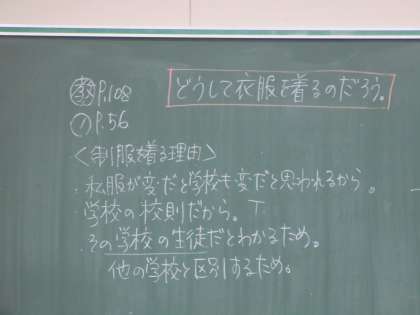 教 P.108
どうして衣服を着るのだろう。
ノP.56
<制服を着る理由>
・私服が変だと学校も変だと思われるから。
・学校の校則だから。 T
・その学校の生徒だとわかるため。
他の学校と区別するため。